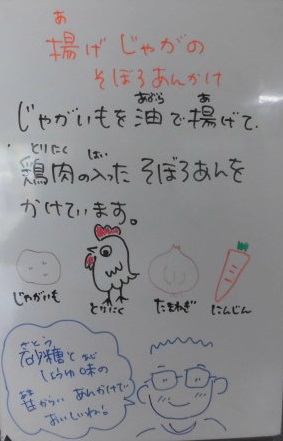 あ
揚げじゃがの
そぼろあんかけ
あぶら あ
じゃがいもを油で揚げて、
とりにく はい
鶏肉の入ったそぼろあんを
かけています。
じゃがいも とりにく たまねぎ にんじん
さとう あじ
砂糖としょうゆ味の
あま
甘からいあんかけで
おいしいね♪